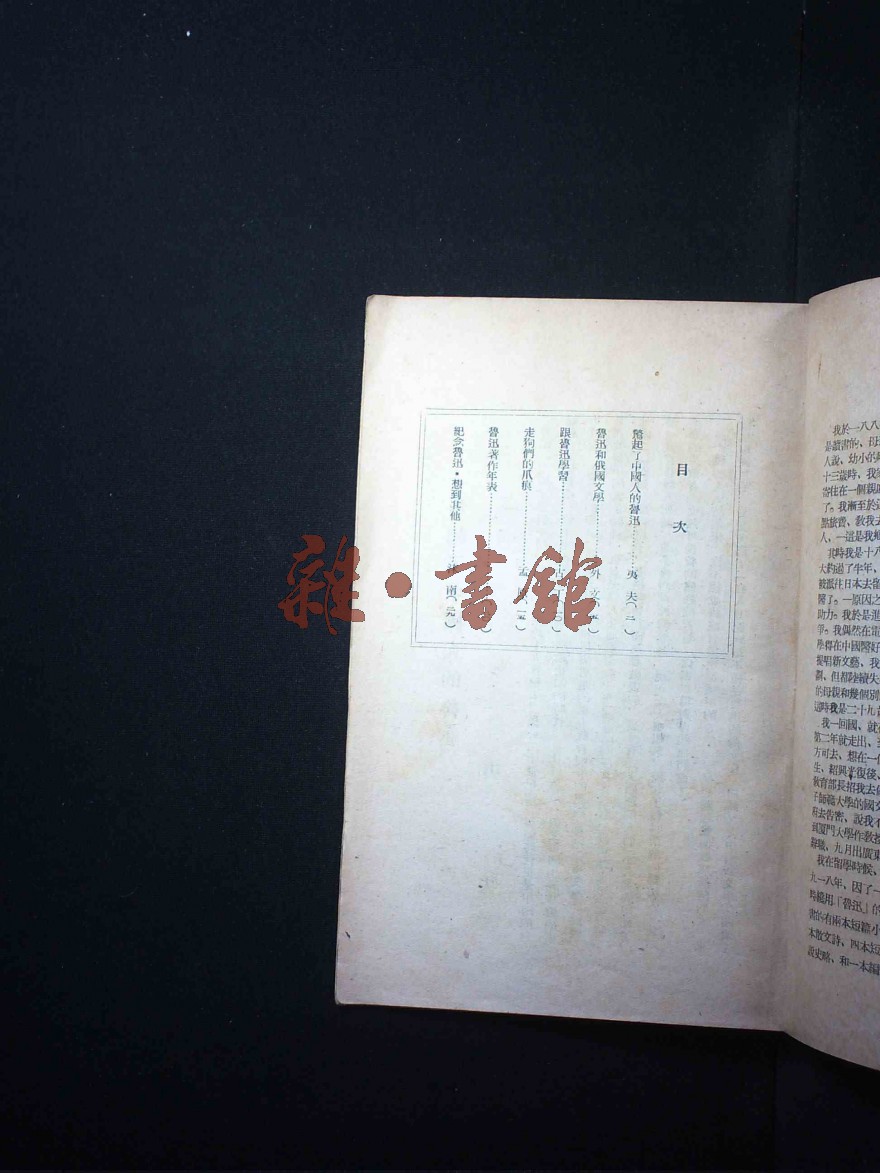 目次
驚起了中國人的魯迅…………夷 夫（二）
魯迅和俄國文學…………外 文
跟魯迅學習…………
走狗們的爪痕…………孟
魯迅著作年表…………
紀念魯迅·想到其他…………南（元）
雜·書館
我於一八八
是讀書的、母
人說、幼小的
十三歲時、我家
寄住在一個親
了。我漸至於
點旅費、教我去
人、一這是我
其時我是十八
大約過了半年、
被派往日本去
醫了。一原因之
助力。我於是進
爭。我偶然在電
學得在中國醫好
提唱新文藝、我
劃、但都陸續失
的母親和幾個別
這時我是二十九
我一回國、就
第二年就走出、
方可去、想在一
生、紹興光復後、
教育部長招我去
子師範大學的國文
府去告密、說我
到厦門大學作教
辭職、九月出廣東
我在留學時候、
九一八年、因了一
時纔用「魯迅」的
書的有兩本短篇小
本散文詩、四本短
說史略、和一本編